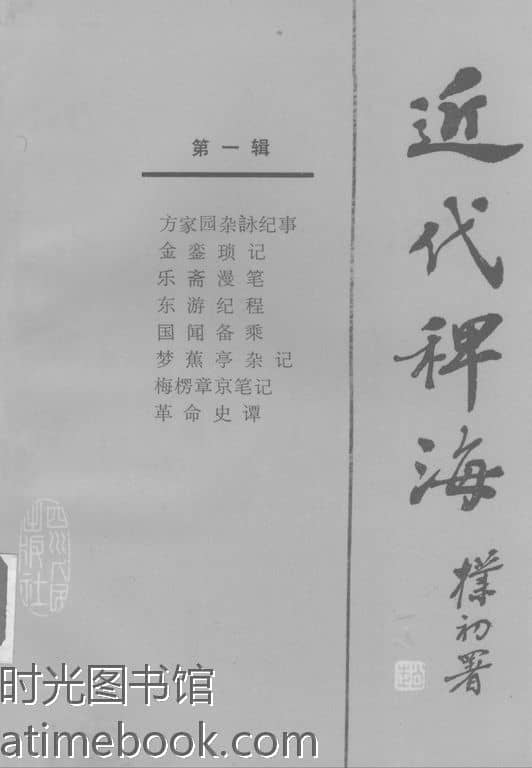 近代稗海
樸初署
第一辑
方家园杂詠纪事
金銮琐记
乐斋漫笔
东游纪程
国闻备乘
梦蕉亭杂记
梅楞章京笔记
革命史谭
四川人民
出版社
时光图书馆
atimebook.com